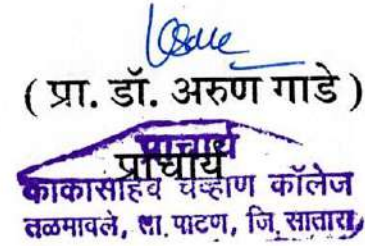 ( प्रा. डॉ. अरुण गाडे )
प्राचार्य
प्राचार्य
काकासाहेब चव्हाण कॉलेज
तळमावले, ता. पाटण, जि. सातारा